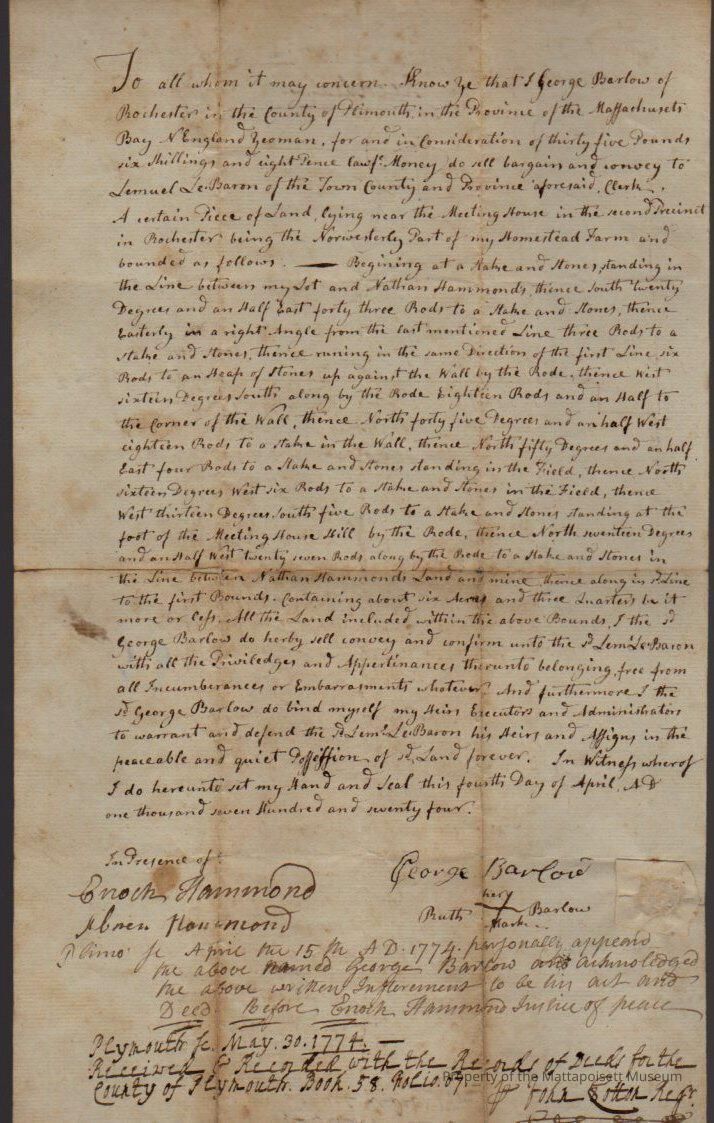 To all whom it may concern. Know Ye that I George Barlow of
Rochester in the County of Plimouth in the Province of the Massachusets
Bay N England Yeoman, for and in Consideration of thirty five Pounds
six Shillings and eight Pence lawf. Money do sell bargain and convey to
Lemuel Le.Baron of the Town County and Province aforesaid, Clerk,
A certain Piece of Land, lying near the Meeting House in the second Precinct
in Rochester being the Norwesterly Part of my Homestead Farm and
bounded as follows. — Begining at a Stake and Stones, standing in
the Line between my Lot and Nathan Hammonds, thence South twenty
Degrees and an Half East forty three Rods to a Stake and Stones, thence
Easterly in a right Angle from the last mentioned Line three Rods to a
Stake and Stones, thence runing in the same Direction of the first Line six
Rods to an Heap of Stones up against the Wall by the Rode, thence West
sixteen Degrees South along by the Rode Eighteen Rods and an Half to
the Corner of the Wall, thence North forty five Degrees and an half West
eighteen Rods to a Stake in the Wall, thence North fifty Degrees and an half
East four Rods to a Stake and Stones standing in the Field, thence North
sixteen Degrees West six Rods to a Stake and Stones in the Field, thence
West thirteen Degrees South five Rods to a Stake and Stones standing at the
foot of the Meeting House Hill, by the Rode, thence North seventeen Degrees
and an Half West twenty seven Rods along by the Rode to a Stake and Stones in
the Line between Nathan Hammonds Land and mine, thence along in sd. Line
to the first Bounds. Containing about six Acres and three Quarters be it
more or less. All the Land included within the above Bounds, I the sd
George Barlow do herby sell convey and confirm unto the sd. Leml. Le.Baron
with all the Priviledges and Appertinances thereunto belonging, free from
all Incumberances or Embarrasments whatever. And furthermore I the
sd. George Barlow do bind myself my Heirs Executors and Administrators
to warrant and defend the sd. Leml. Le.Baron his Heirs and Assigns in the
peaceable and quiet Possession of sd. Land forever. In Witness wherof
I do hereunto set my Hand and Seal this fourth Day of April, AD
one thousand seven Hundred and seventy four.
In Presence of
Enoch Hammond
George Barlow
her
Ruth Barlow
Mark
Hammond
Plimo. Sc. April the 15th A.D. 1774. personally appeard
the above named George Barlow and acknoledged
the above written Insterement to be his act and
Deed Before Enoch Hammond Justice of peace
Plymouth. Sc. May. 30. 1774. —
Received & Recorded with the Records of Deeds for the
County of Plymouth. Book. 58. Folio.
John Cotton Regr.
Property of the Mattapoisett Museum